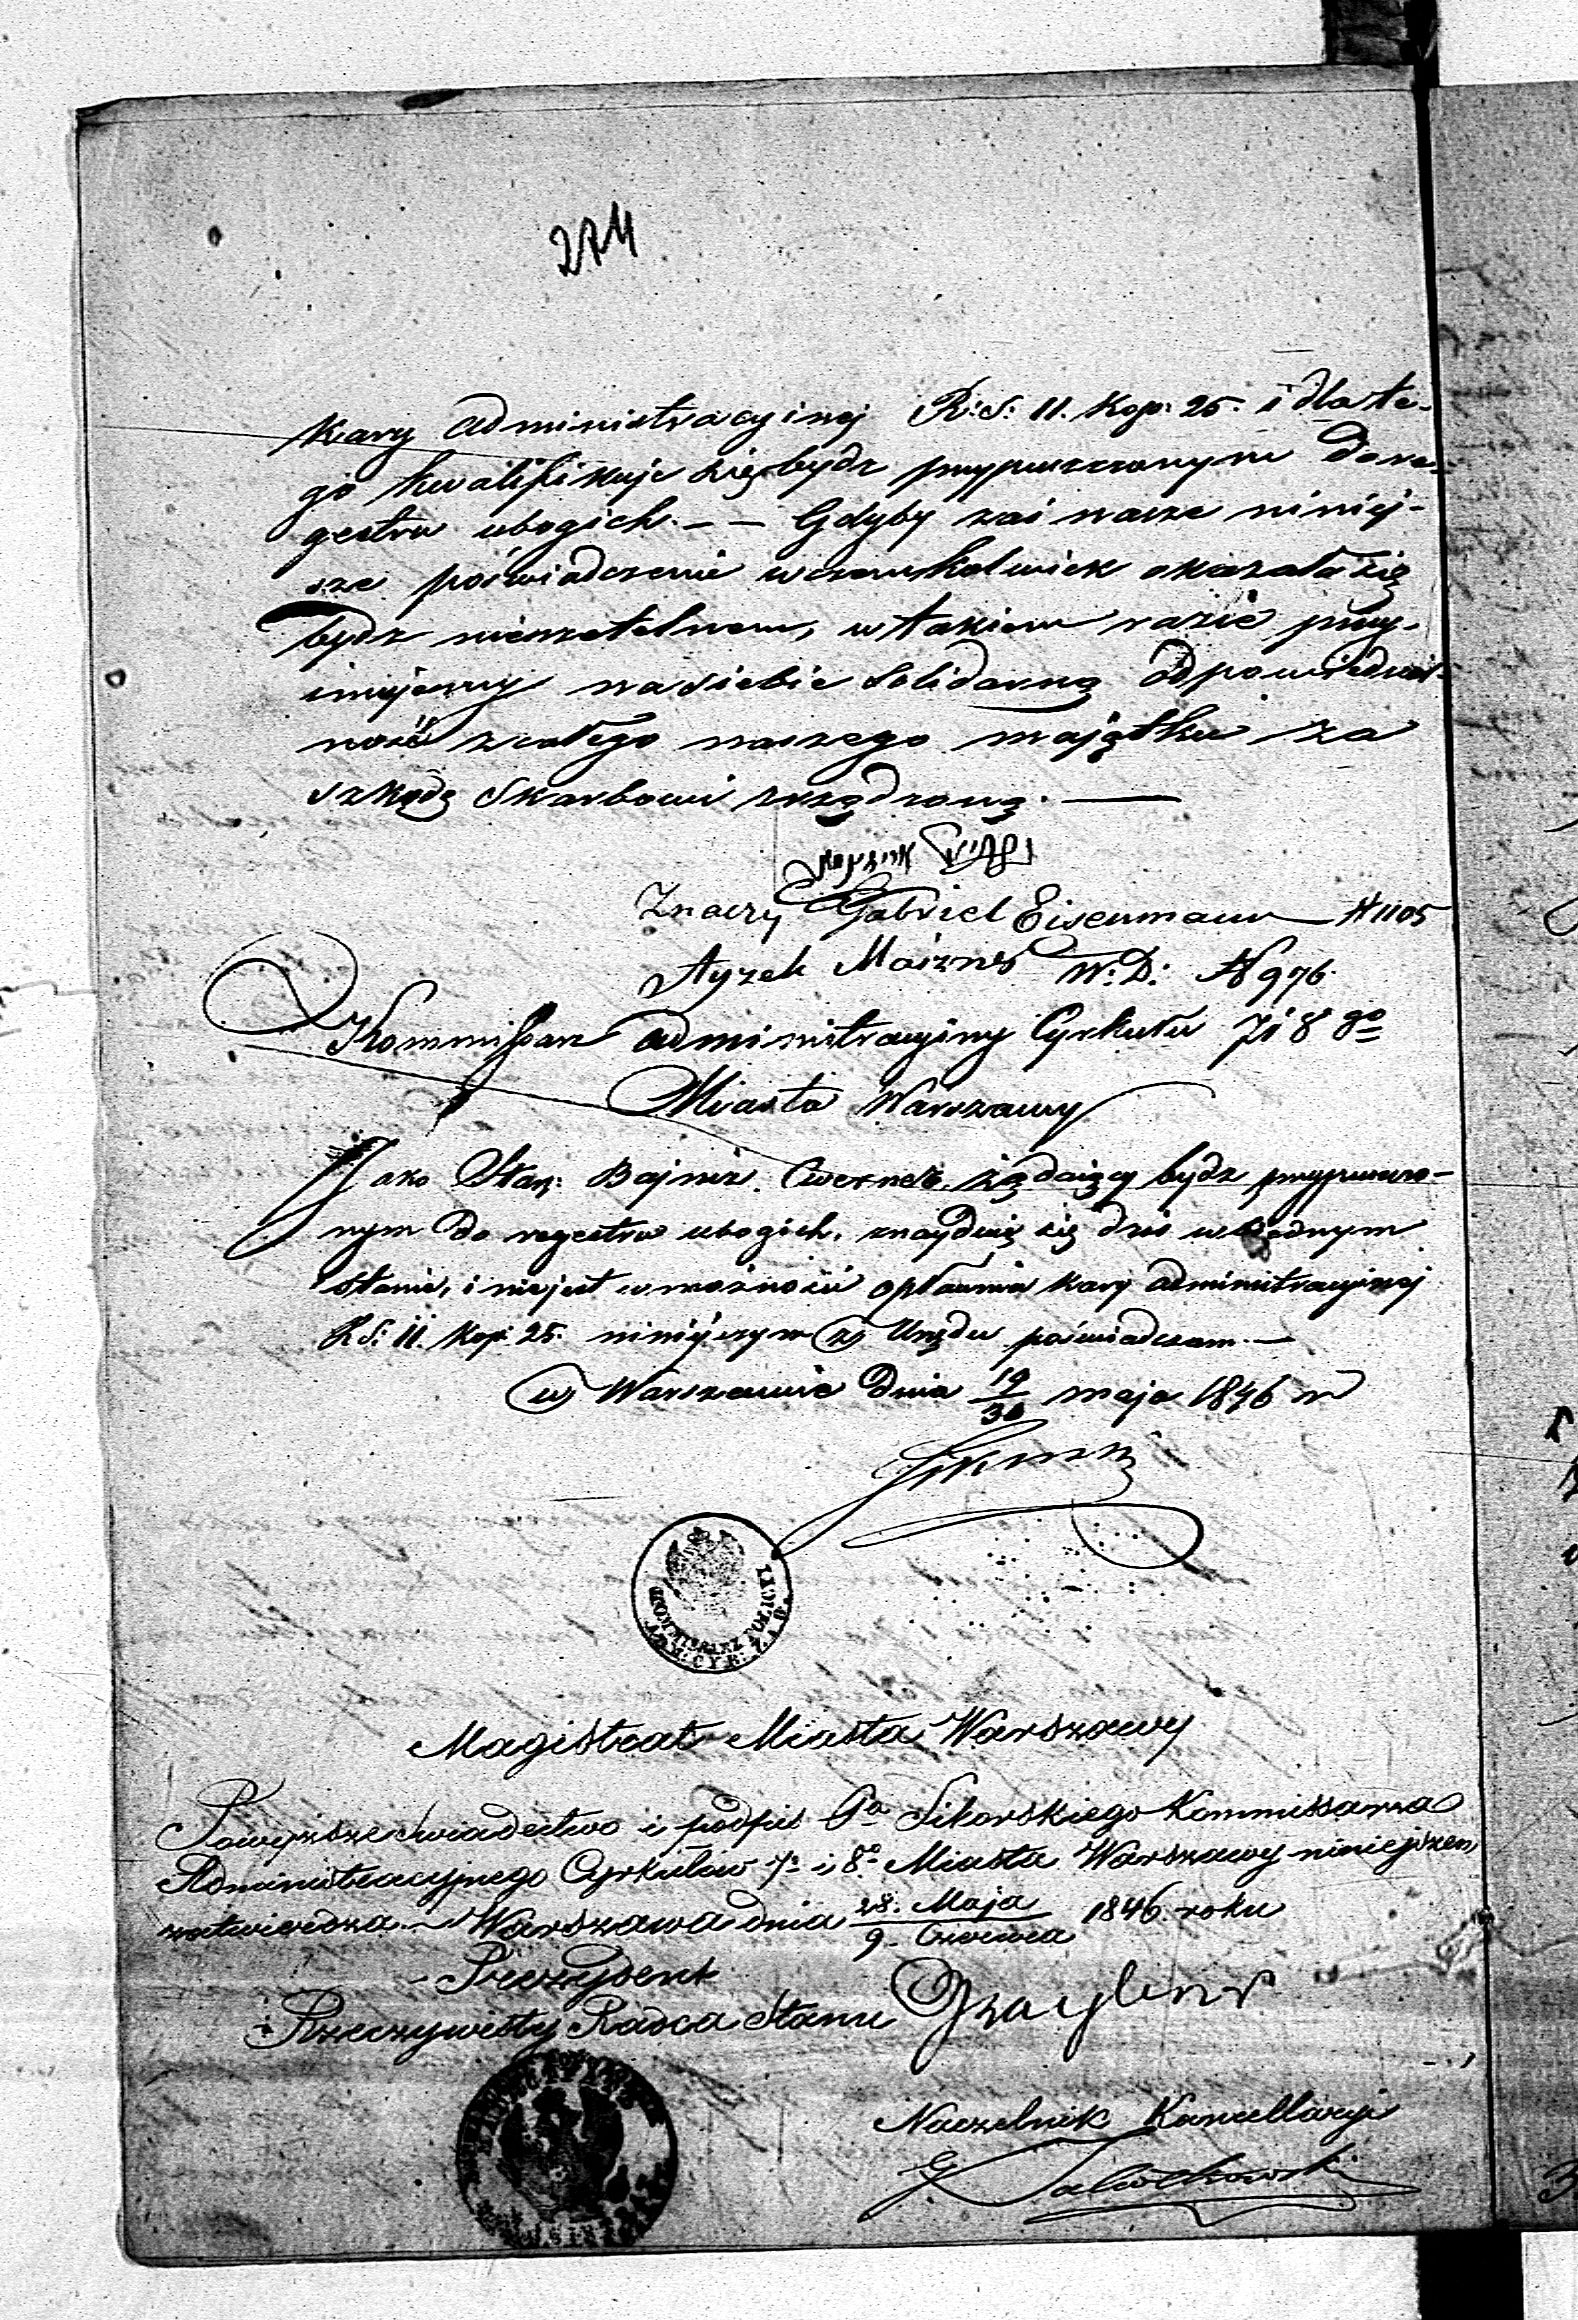 274
Kary administracyinej R: S: 11. Kop: 25. i dlate-
go kwalifikuje się bydz przypuszczonym do re-
gestru ubogich. — — Gdyby zaś nasze niniej-
sze poświadczenie w czemkolwiek okazało się
bydz nierzetelnem, w takiem razie przy-
imujemy na siebie Solidarną odpowiedzial-
ność z całego naszego majątku za
szkodę Skarbowi zrządzoną. —
Znaczy Gabriel Eisenmann N 1105
Ayzek Maiznes W: D: N 976.
Kommissarz administracyiny Cyrkułu 7 i 8 go
Miasta Warszawy
Jako Star: Bajnisz żądaiący bydz przypuszczo-
nym do regestru ubogich, znayduie się dziś w biednym
stanie, i niejest w możności opłacenia kary administracyinej
RS: 11. Kop: 25. niniejszym z Urzędu poświadczam. —
w Warszawie dnia 19/30 maja 1846 r
KOMMISSARZ POLICYI
ADM: CYR: 7 i 8.
Magistrat Miasta Warszawy
Powyższe świadectwo i podpis Pa Sikorskiego Kommissarza
Administracyjnego Cyrkułów 7o i 8o Miasta Warszawy niniejszem
zatwierdza. — Warszawa dnia 28. Maja / 9. Czerwca 1846. roku
Prezydent
Rzeczywisty Radca Stanu Graybner
Naczelnik Kancellaryi